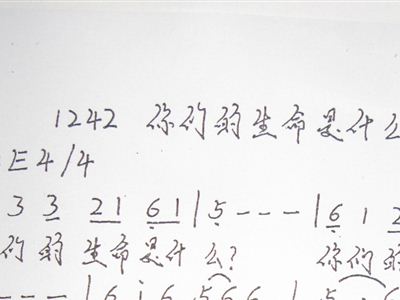 1242 你们的生命是什么
E 4/4
3 3 21 61 | 5 - - - | 6 1 2
们的 生命是什么? 你们的
- - - | 6 1 6 5 6 6 | 5 6